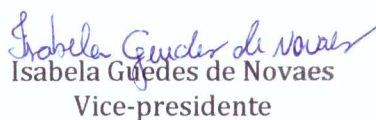 Isabela Guedes de Novaes
Isabela Guedes de Novaes
Vice-presidente